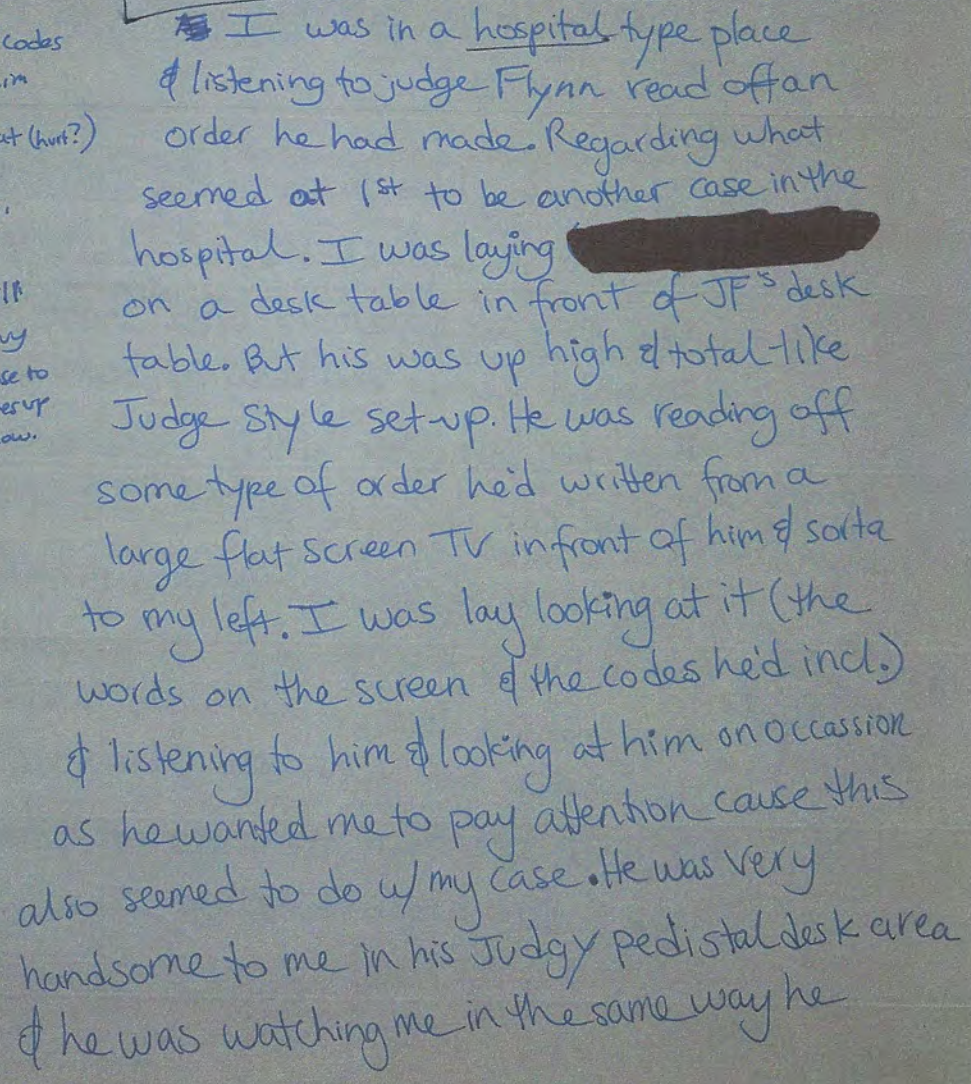 codes
im
at (hurt?)
se to
es up
ow.
I was in a hospital type place
& listening to judge Flynn read off an
order he had made. Regarding what
seemed at 1st to be another case in the
hospital. I was laying
on a desk table in front of JF's desk
table. But his was up high & total-like
Judge Style set-up. He was reading off
some type of order he'd written from a
large flat screen TV in front of him & sorta
to my left. I was lay looking at it (the
words on the screen & the codes he'd incl.)
& listening to him & looking at him on occassion
as he wanted me to pay attention cause this
also seemed to do w/ my case. He was very
handsome to me in his Judgy pedistal desk area
& he was watching me in the same way he